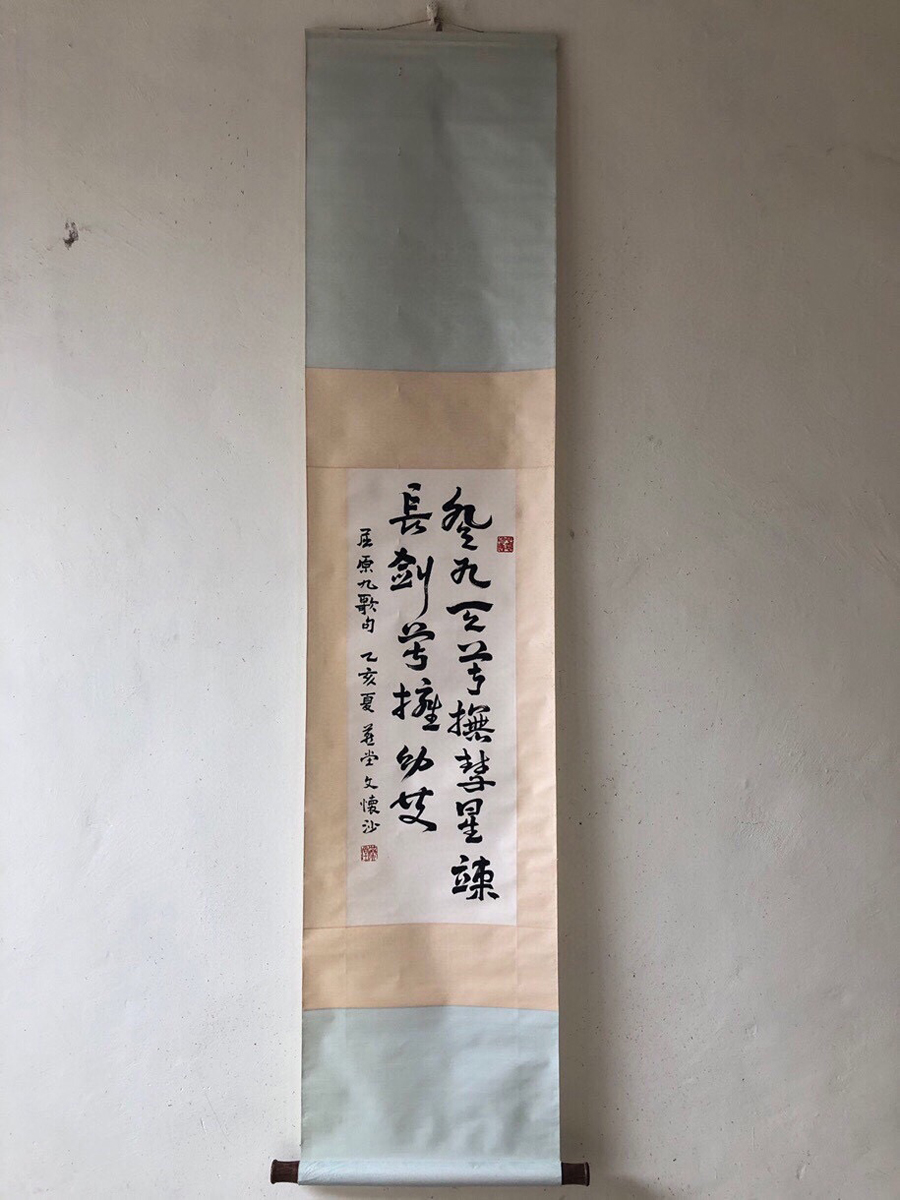 登九天兮撫彗星竦
長劍兮擁幼艾
屈原九歌句 乙亥夏 燕堂 文懷沙